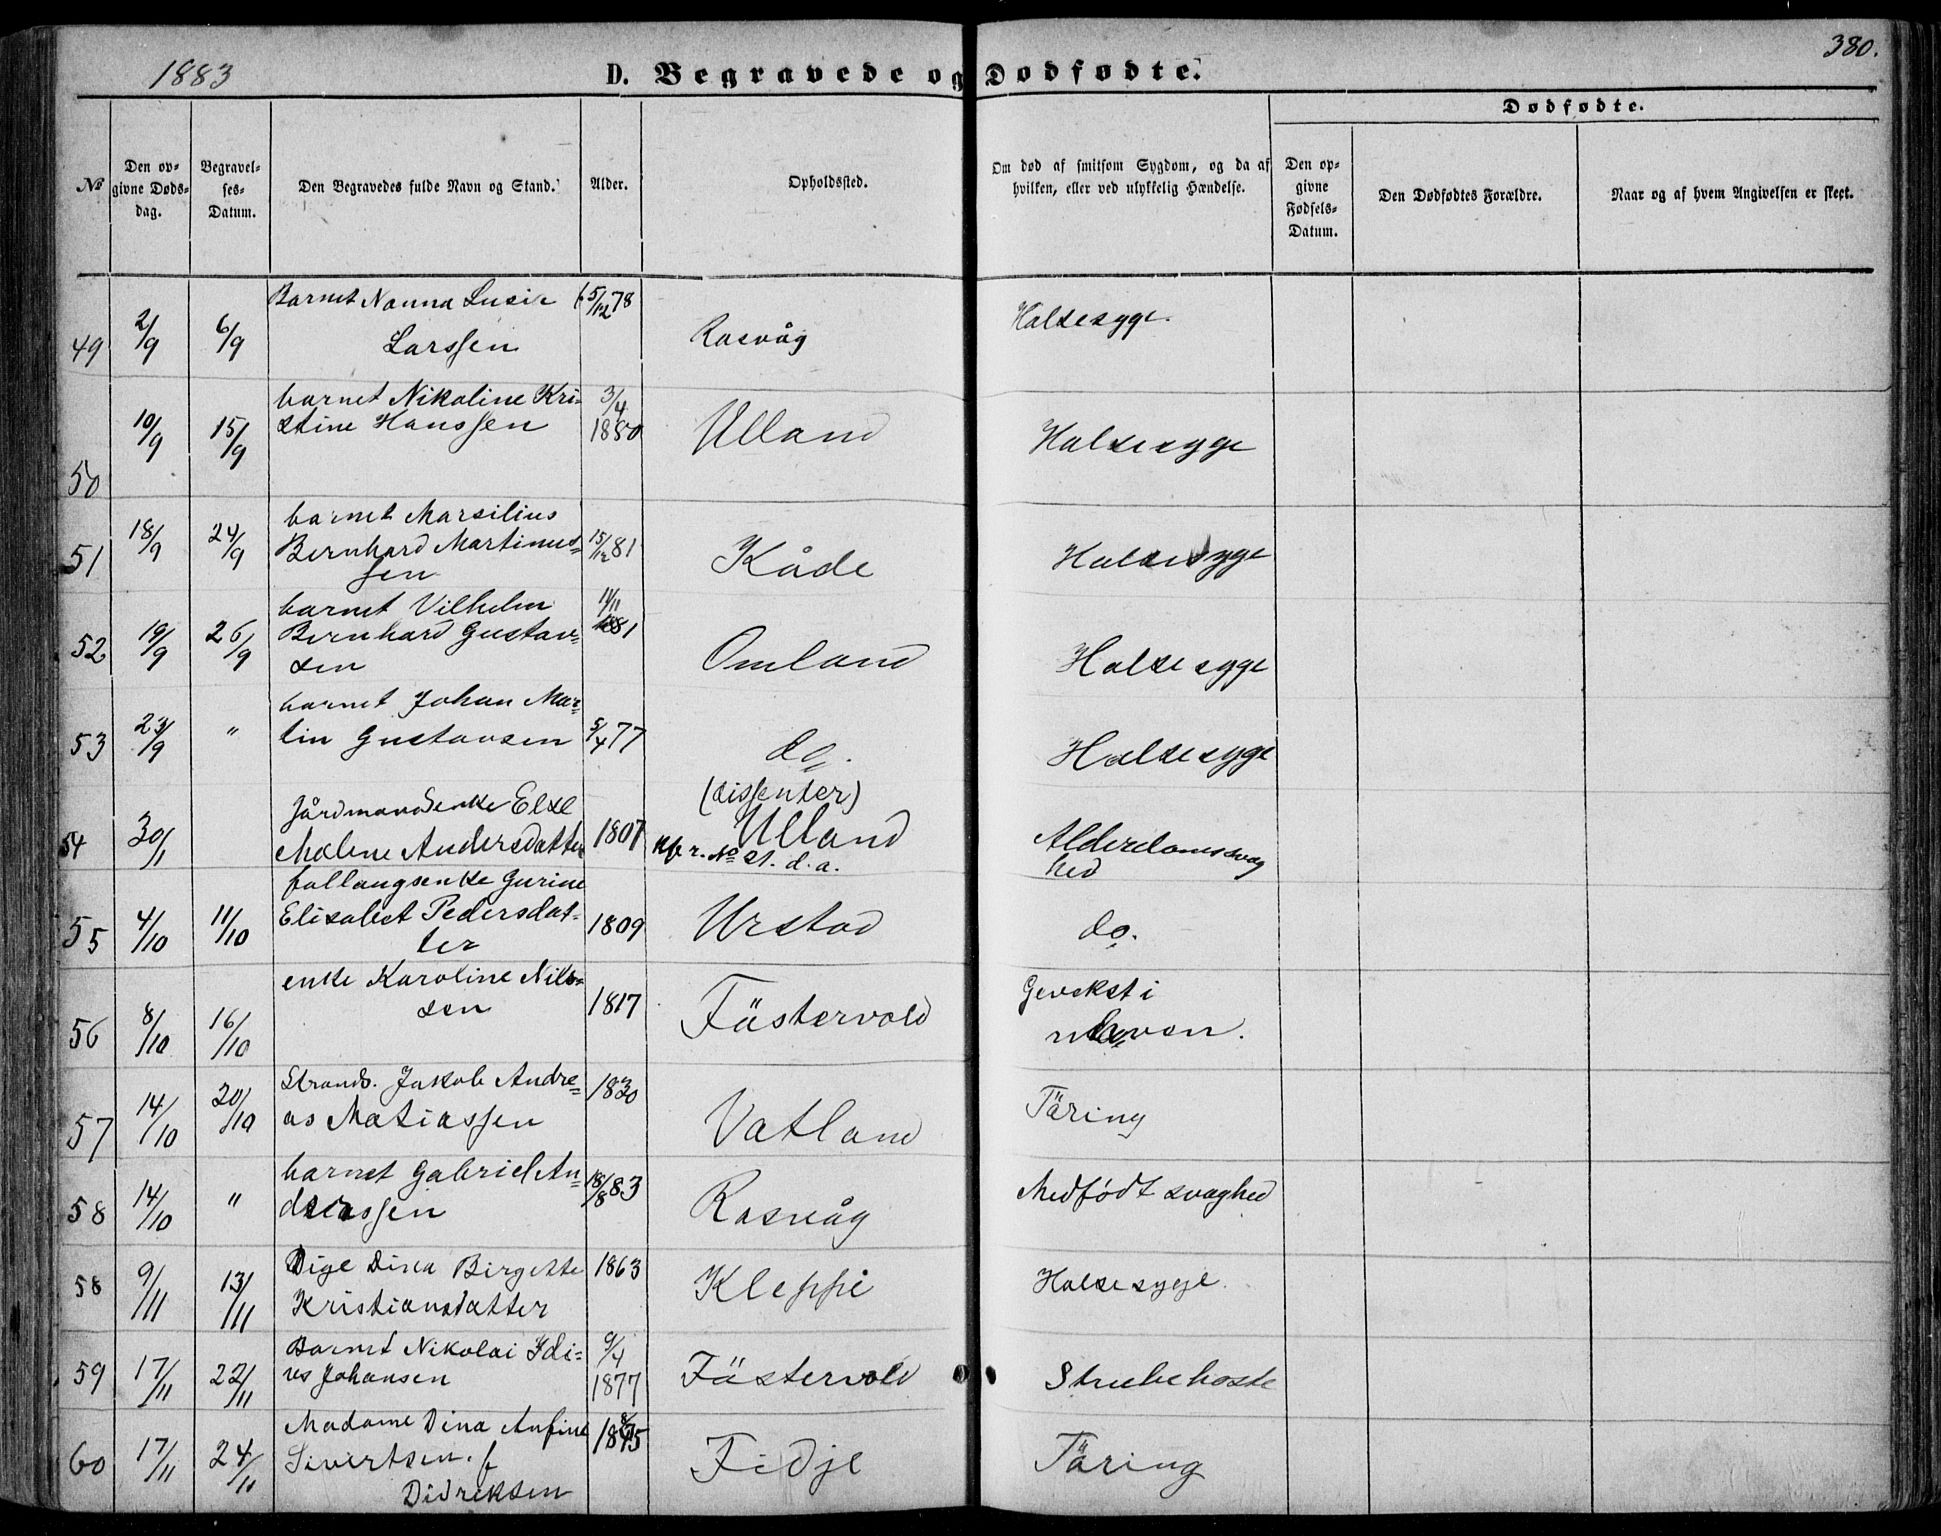 1883
D. Begravede og Dødfødte.
380.
Dødfødte.
№
Den opgivne Dødsdag.
Begravelses-Datum.
Den Begravedes fulde Navn og Stand.
Alder.
Opholdssted.
Om død af smitsom Sygdom, og da af hvilken, eller ved ulykkelig Hændelse.
Den opgivne Fødsels-Datum.
Den Dødfødtes Forældre.
Naar og af hvem Angivelsen er skeet.
49 2/9 6/9 Barnet Nanna Lusie f 5/12 78
Larssen Rosvåg Halsesyge.
50 10/9 15/9 barnet Nikoline Kri= 3/4
stine Hanssen 1880 Ulland Halsesyge
51 18/9 24/9 barnet Marsilius
Bernhard Martinus= 15/12 81
sen Kåde Halsesyge
52 19/9 26/9 barnet Vilhelm 11/11
Bernhard Gustav= 1881
sen Omland Halsesyge
53 23/9 " barnet Johan Mar=
tin Gustavsen 5/4 77 do. Halsesyge
(dissenter)
54 30/1 Gårdmandsenke Else
Malene Andersdatter 1807 Ulland Alderdomssvag
hed
Kfr. No 21. d. a.
55 4/10 11/10 follaugsenke Gurine
Elisabet Pedersdat=
ter 1809 Urstad do.
56 8/10 16/10 enke Karoline Nils=
sen 1817 Fästervold Gevekst i
57 14/10 20/10 Strands. Jakob Andre= 1830
as Matiassen Vatland Täring
58 14/10 " barnet Gabriel An= 18/8 83
derssen Rosvåg Medfödt svaghed
58 9/11 13/11 Pige Dina Birgette 1863
Kristiansdatter Kleppe Halsesyge.
59 17/11 22/11 Barnet Nikolai Idi= 9/4
us Johansen 1877 Fästervold Strubehoste
60 17/11 24/11 Madame Dina Anfine
Sivertsen. f
Didreksen Fidje Täring